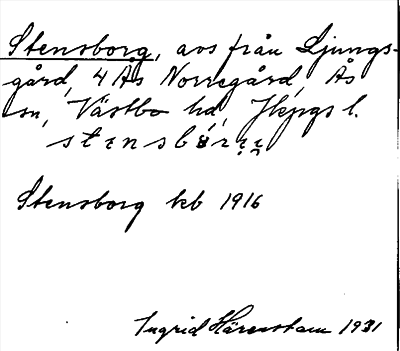 Stensborg, avs från Ljungs-
gård, 4 Ås Norregård, Ås
sn, Västbo hd, Jkpgs l.
Stensborg kb 1916
Ingrid Härenstam 1931